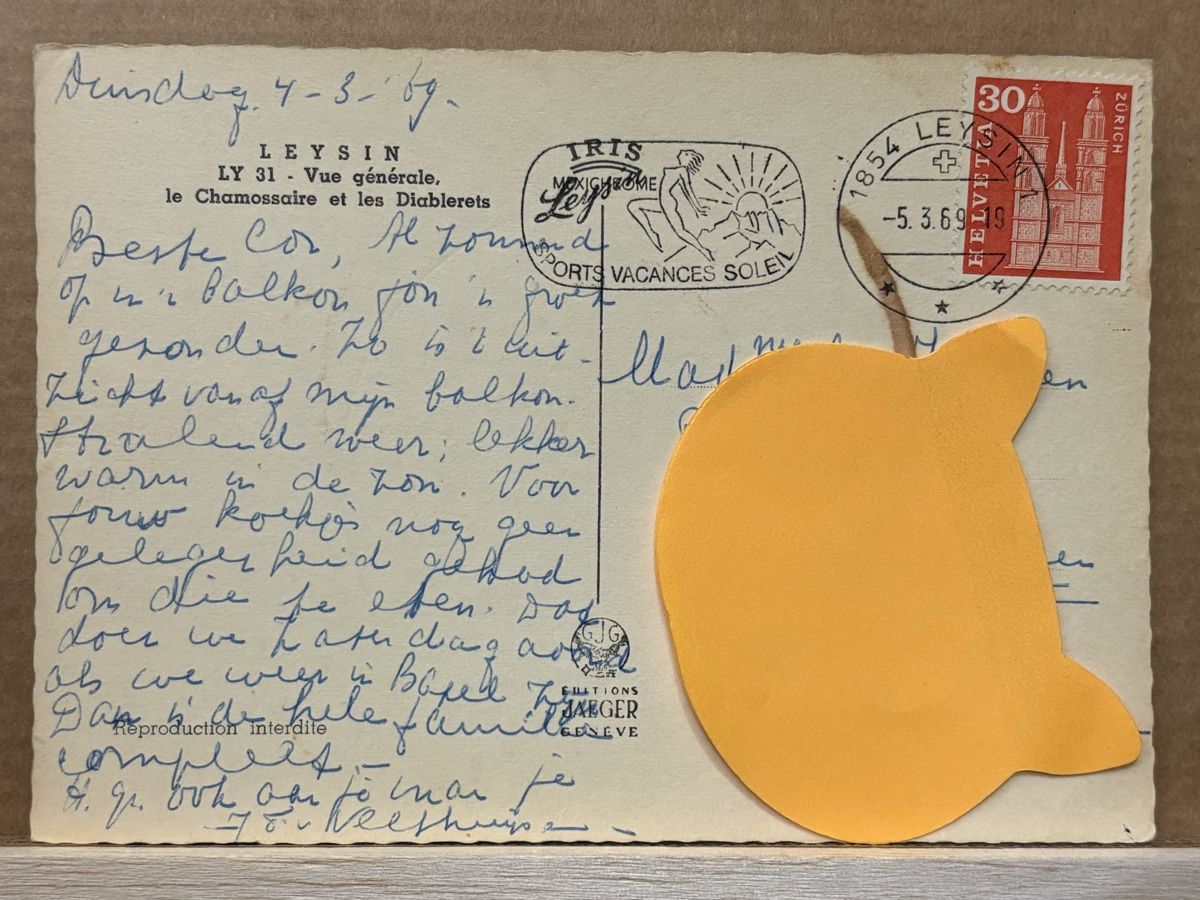 Dinsdag 4-3-'69.
LEYSIN
LY 31 - Vue générale,
le Chamossaire et les Diablerets
Beste Cor, Al zonnend
op m'n balkon jou 'n groet
gezonden. Zo is 't uit-
zicht vanaf mijn balkon.
Stralend weer; lekker
warm in de zon. Voor
jouw koekjes nog geen
gelegenheid gehad
om die te eten. Dat
doen we Zaterdag avond
als we weer in Bazel zijn
Dan is de hele familie
compleet.-
H. gr. ook aan je
Reproduction interdite
IRIS
MEXICHROME
Leysin
SPORTS VACANCES SOLEIL
1854 LEYSIN 1
-5.3.69 19
30
HELVETIA
ZÜRICH
en
en
GJG
EDITIONS
JAEGER
GENÈVE